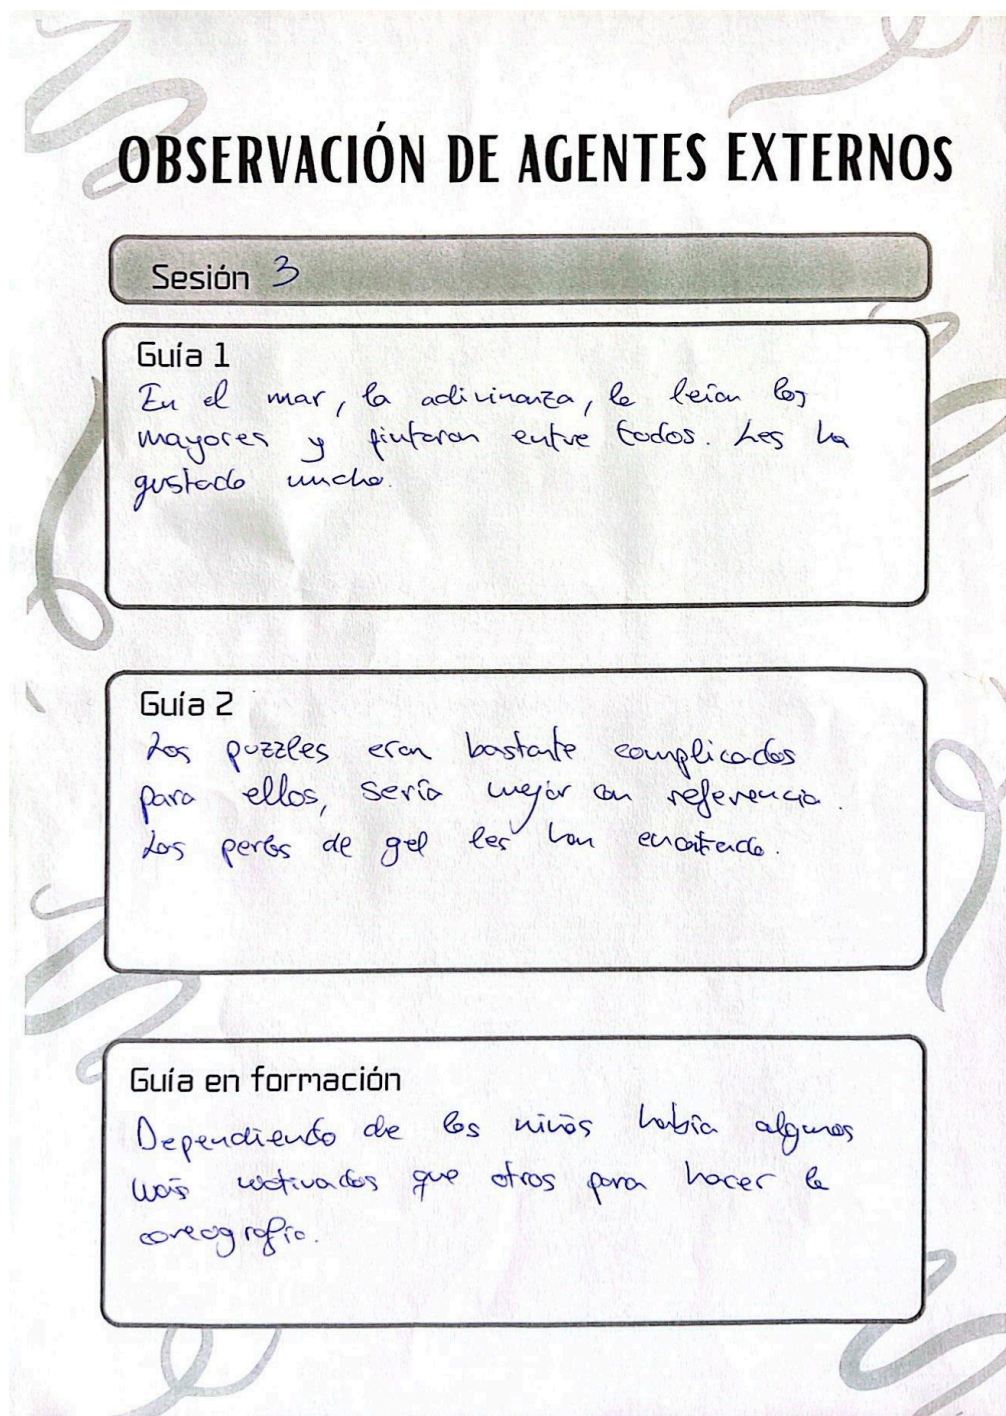 OBSERVACIÓN DE AGENTES EXTERNOS
Sesión 3
Guía 1
En el mar, la adivinanza, la leían los
mayores y pintaron entre todos. Les ha
gustado mucho.
Guía 2
Los puzzles eran bastante complicados
para ellos, sería mejor con referencia.
Las perlas de gel les han encantado.
Guía en formación
Dependiendo de los niños había algunos
más motivados que otros para hacer la
coreografía.